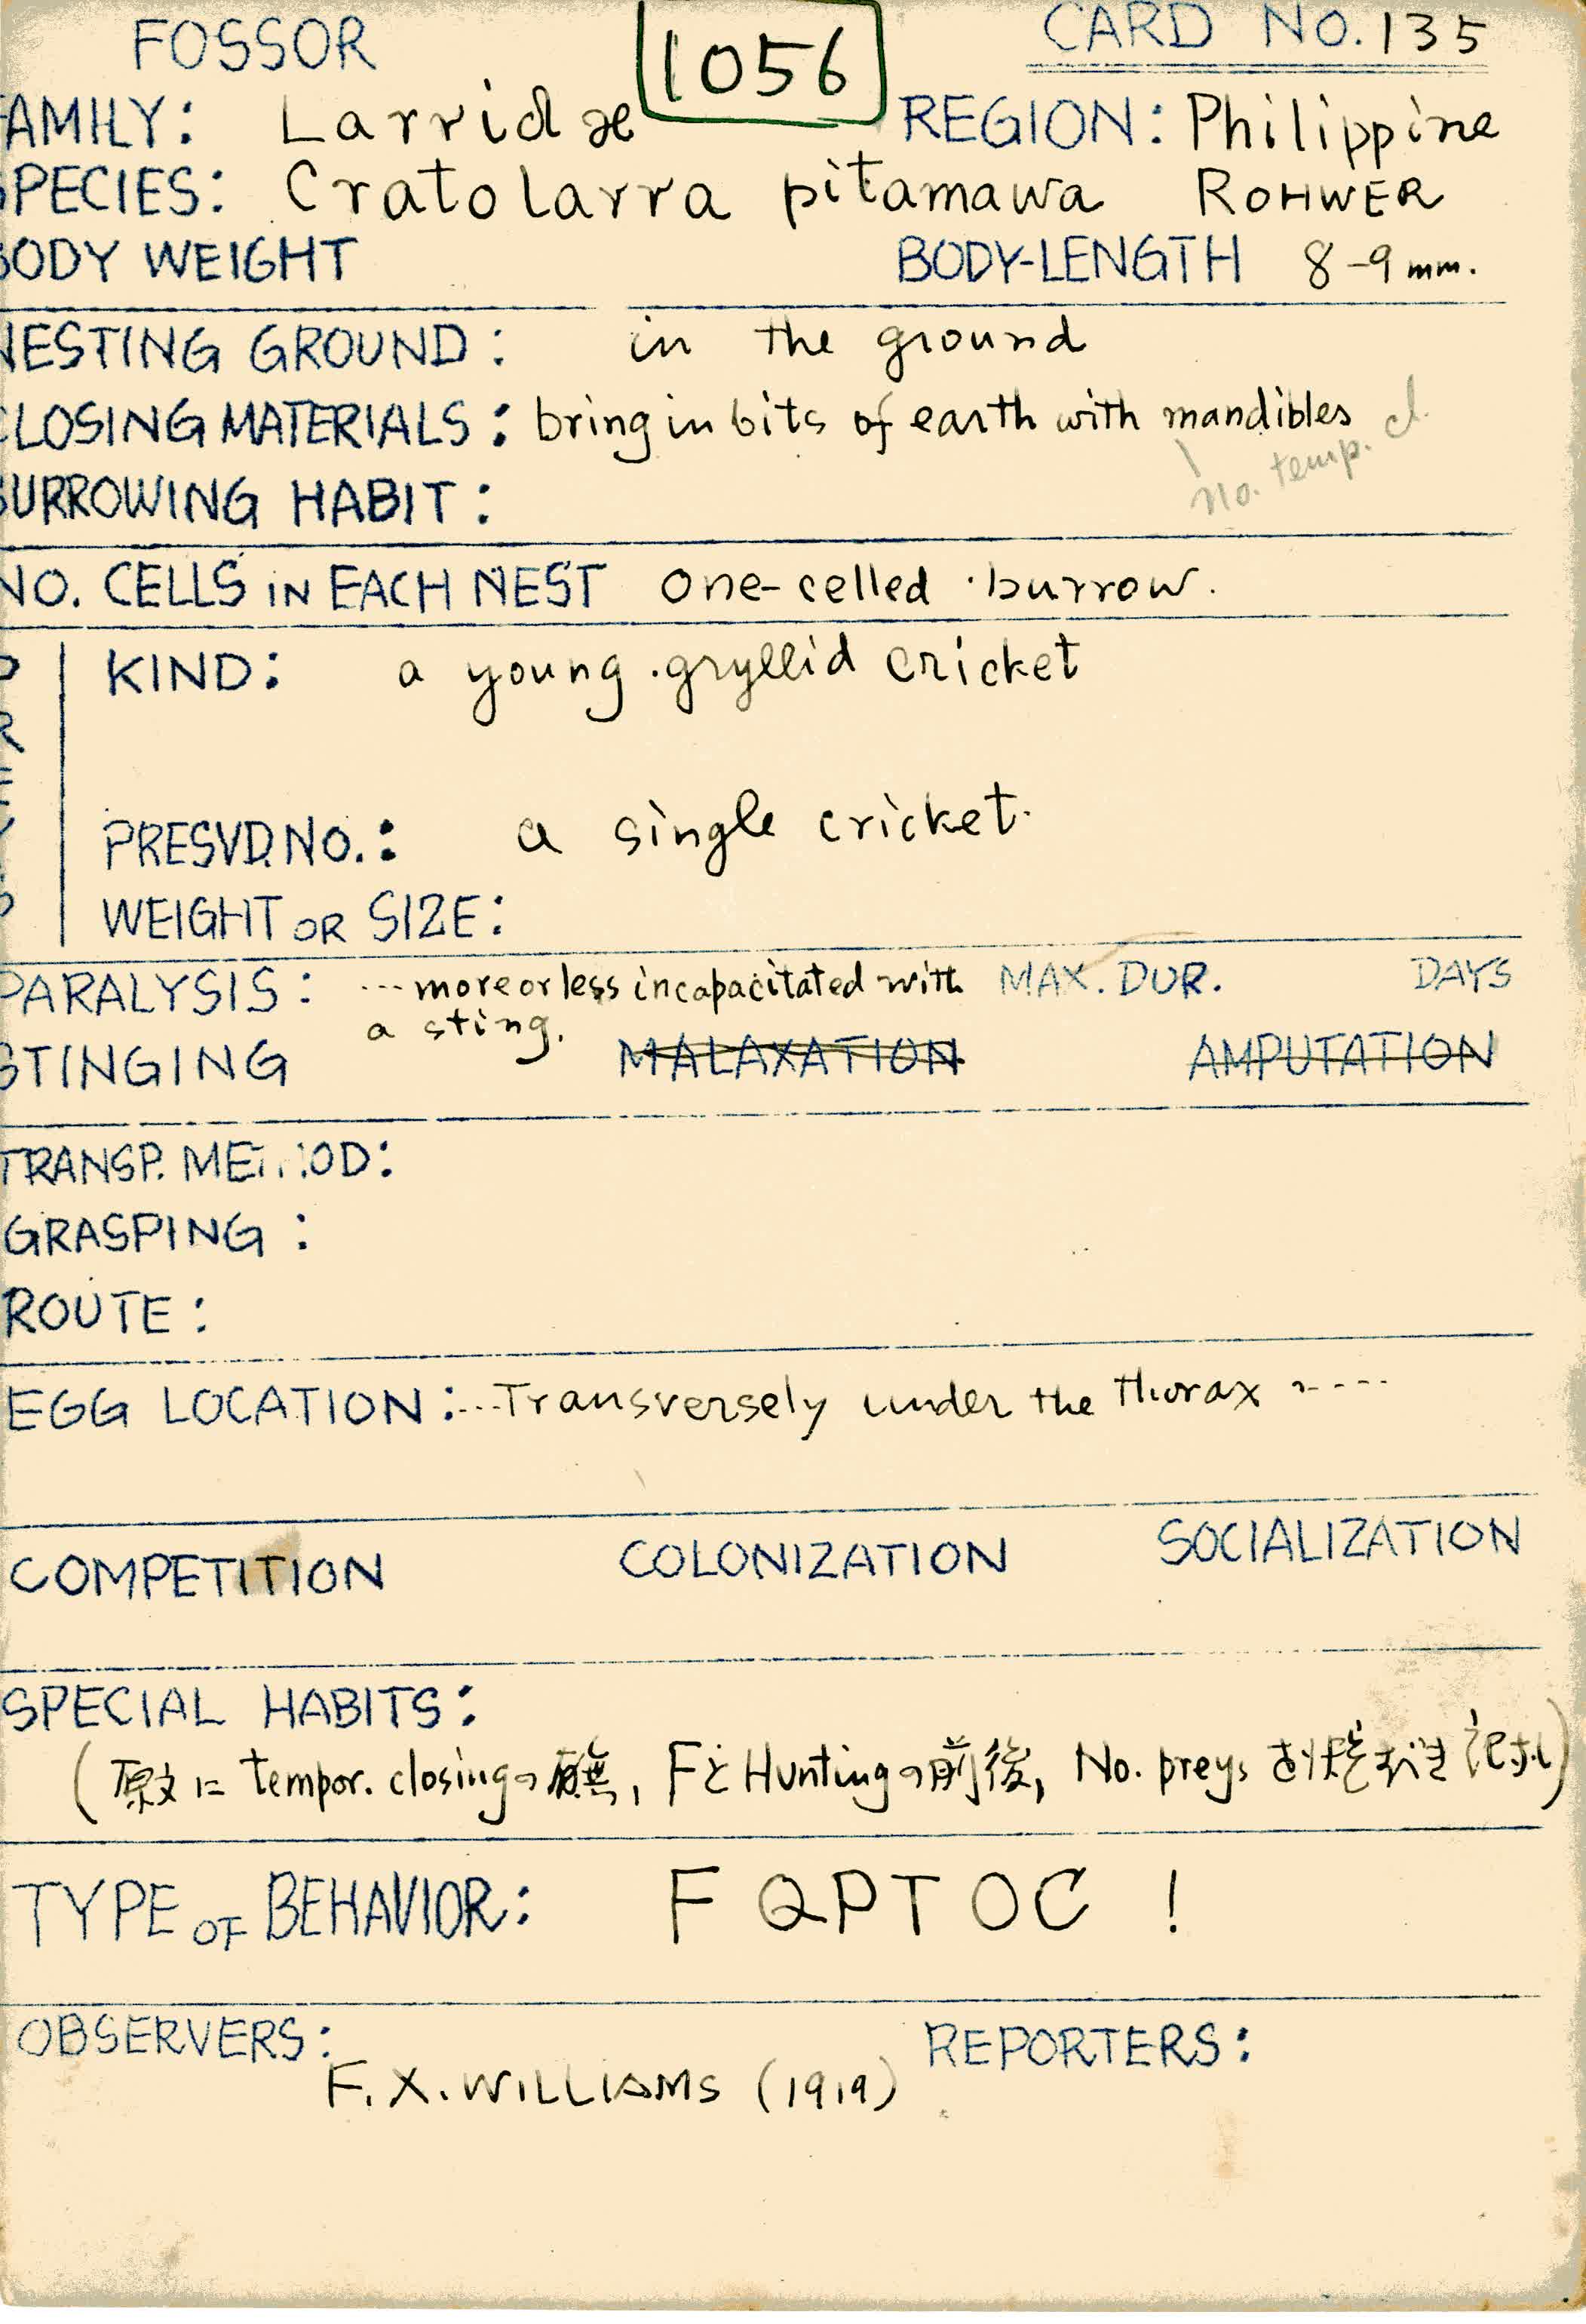 FOSSOR 1056 CARD NO. 135
AMILY: Larridæ REGION: Philippine
PECIES: Cratolarra pitamawa ROHWER
ODY WEIGHT BODY-LENGTH 8-9 mm.
ESTING GROUND: in the ground
LOSING MATERIALS: bring in bits of earth with mandibles cl.
no. temp.
URROWING HABIT:
NO. CELLS IN EACH NEST one-celled burrow.
KIND: a young gryllid cricket
PRESVD. NO.: a single cricket.
WEIGHT OR SIZE:
PARALYSIS: ... more or less incapacitated with MAX. DUR. DAYS
a sting.
STINGING MALAXATION AMPUTATION
TRANSP. METHOD:
GRASPING:
ROUTE:
EGG LOCATION: ... Transversely under the thorax ----
COMPETITION COLONIZATION SOCIALIZATION
SPECIAL HABITS:
(原文に tempor. closingの, FとHuntingの前後, No. preys
TYPE OF BEHAVIOR: FQPTOC !
OBSERVERS: REPORTERS:
F. X. WILLIAMS (1919)